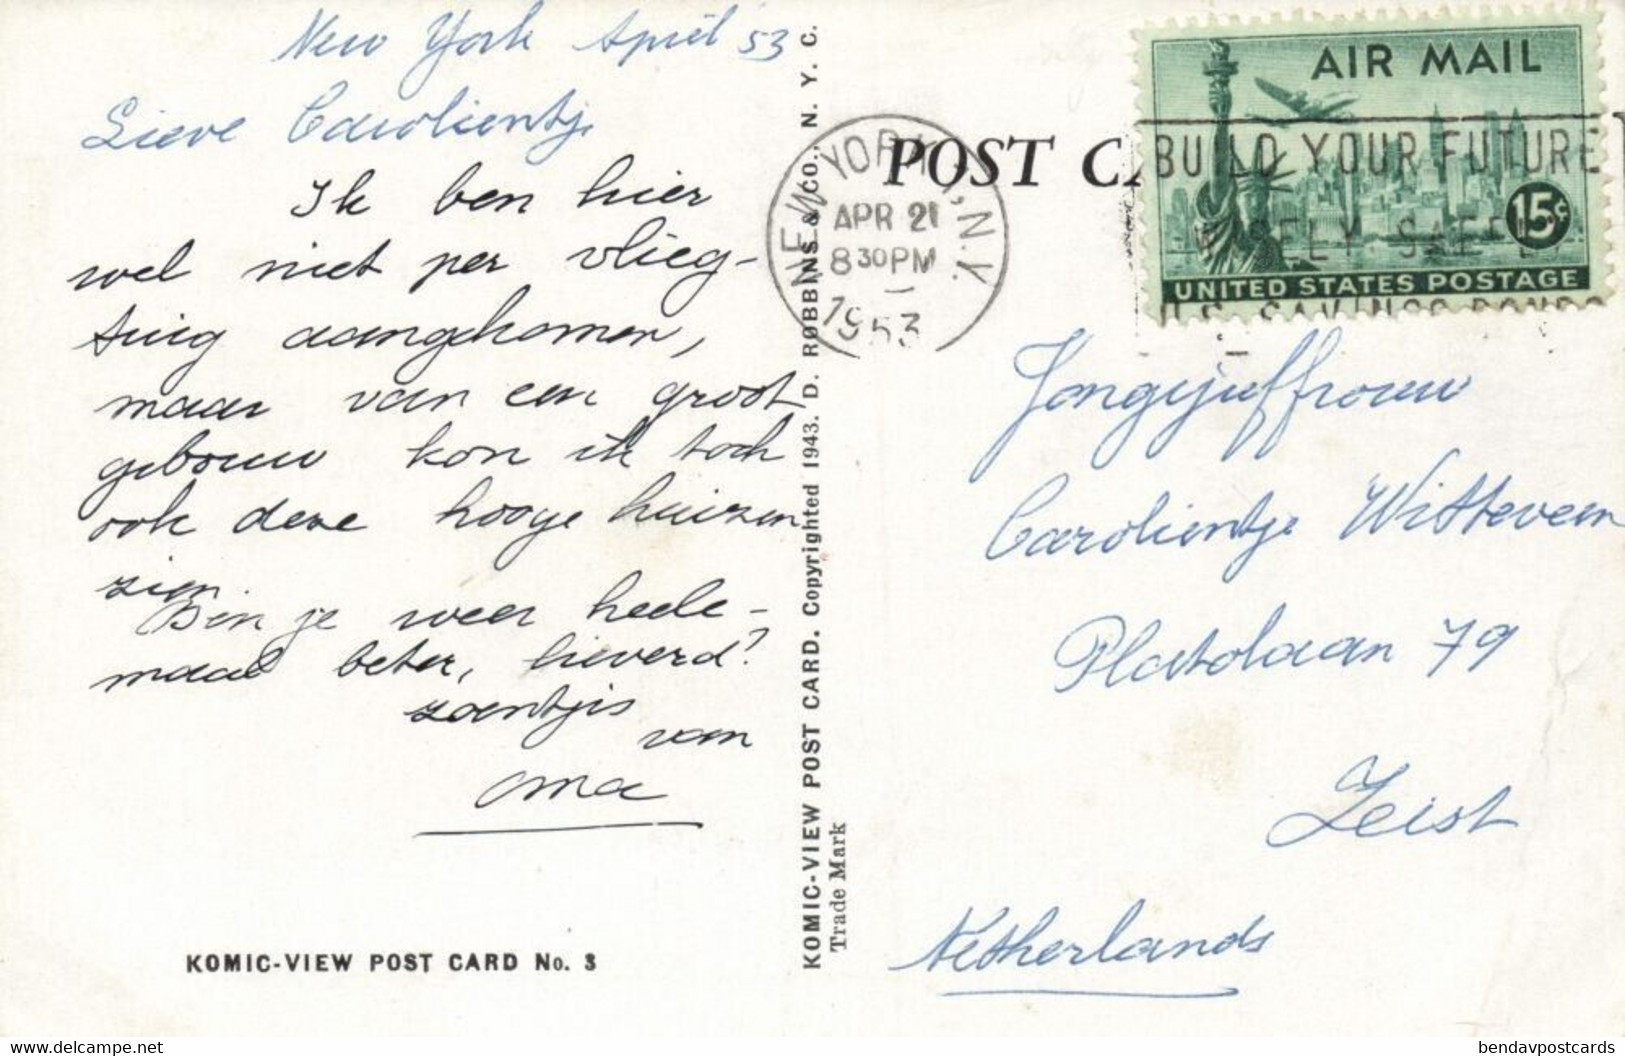 New York April '53
Lieve Carolientje
Ik ben hier
wel niet per vlieg-
tuig aangekomen,
maar van een groot
gebouw kon ik toch
ook deze hooge huizen
zien.
Ben je weer heele-
maal beter, lieverd?
zoentjes
van
oma
KOMIC-VIEW POST CARD No. 3
KOMIC-VIEW POST CARD. Copyrighted 1943. D. ROBBINS & CO., N. Y. C.
Trade Mark
POST CA
NEW YORK, N.Y.
APR 21
8 30 PM
1953
AIR MAIL
BUILD YOUR FUTURE
WISELY SAFELY
15c
UNITED STATES POSTAGE
U.S. SAVINGS BONDS
Jongejuffrouw
Carolientje Witteveen
Platolaan 79
Zeist
Netherlands
http://www.delcampe.net
bendavpostcards